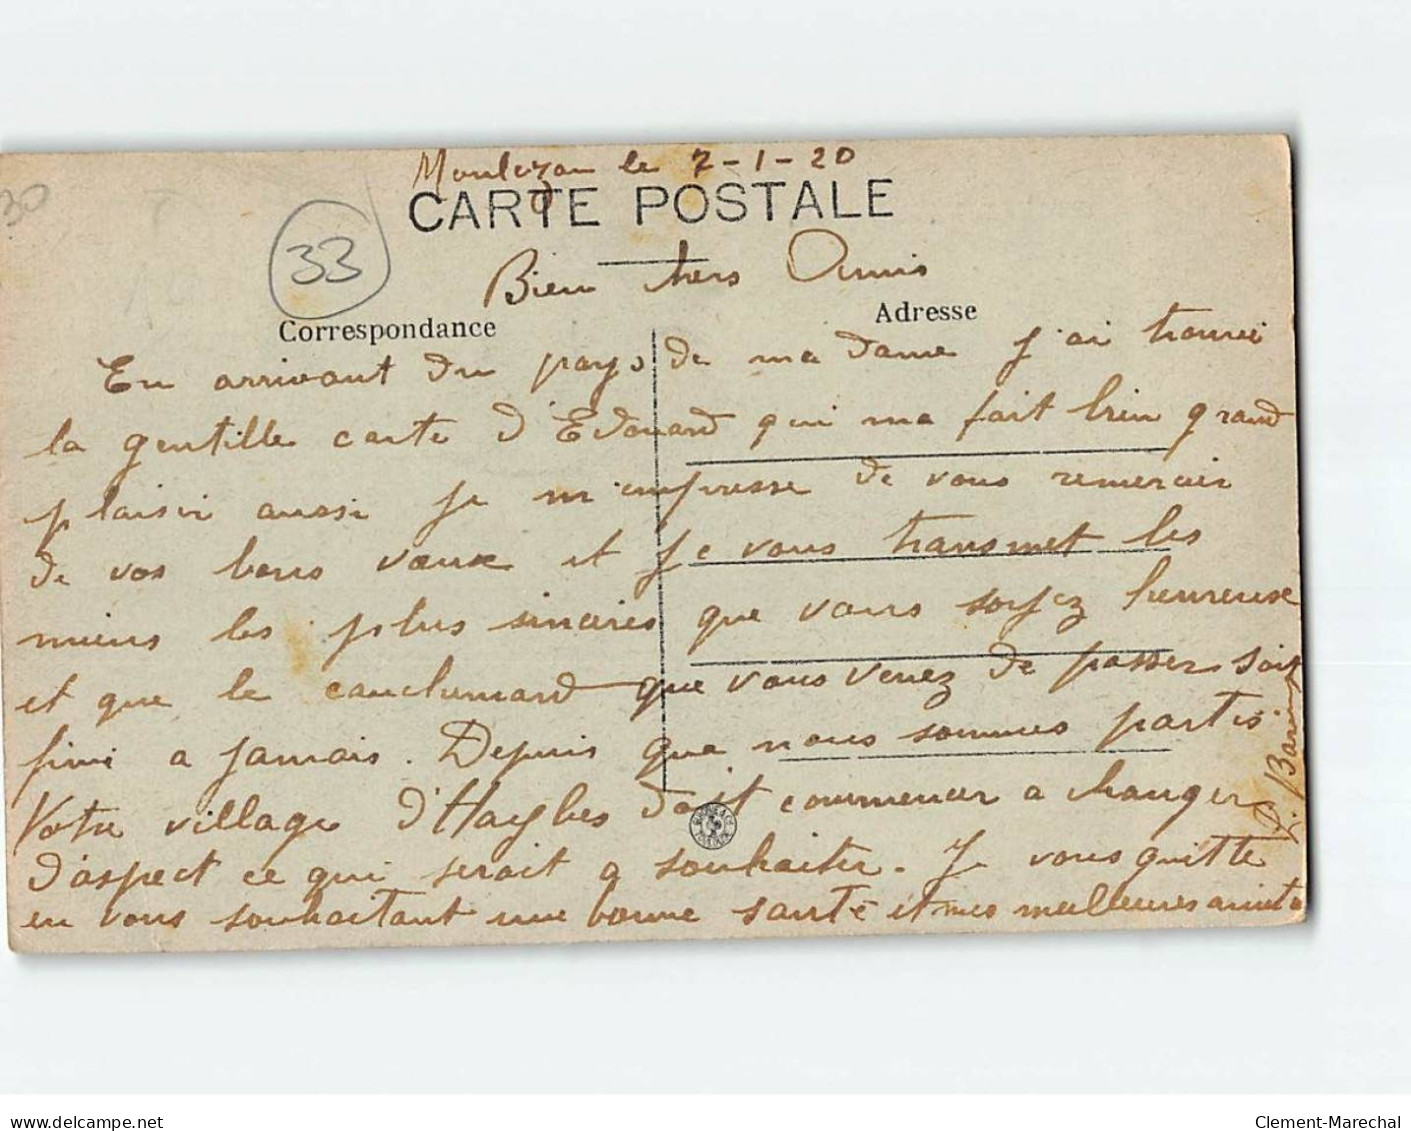 le 7-1-20
CARTE POSTALE
30
33
Bien chers Amis
Correspondance
Adresse
En arrivant du pays de ma dame j'ai trouvé
la gentille carte d'Edouard qui ma fait bien grand
plaisir aussi je m'empresse de vous remercier
de vos bons vœux et je vous transmet les
miens les plus sincères que vous soyez heureuse
et que le cauchemard que vous venez de passer soit
fini a jamais. Depuis que nous sommes partis
Votre village d'Haybes doit commencer a changer
d'aspect ce qui serait a souhaiter. Je vous quitte
en vous souhaitant une bonne santé et mes meilleures amitiés
Clement-Marechal
www.delcampe.net